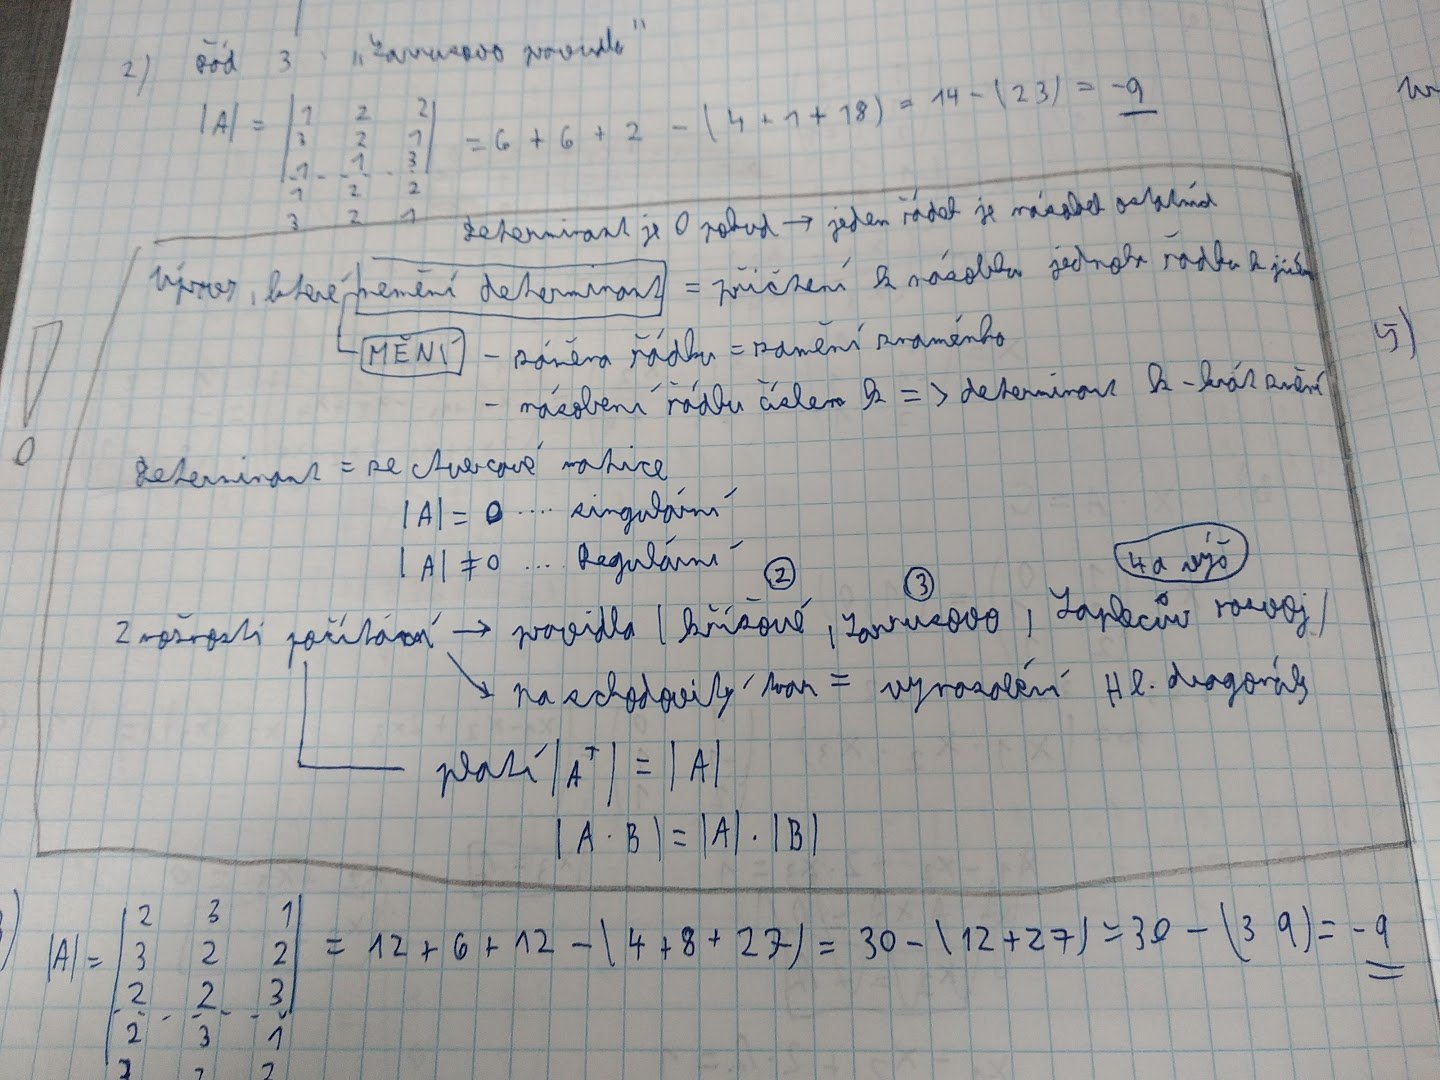 2) Řád 3 „Sarrusovo pravidlo"
|A| = | 1 2 2 | = 6 + 6 + 2 - (4 + 1 + 18) = 14 - (23) = -9
3 2 1
1 1 3
1 2 2
3 2 1
Determinant je 0 pokud → jeden řádek je násobek ostatních
Úpravy, které nemění determinant = přičtení k násobku jednoho řádku k
MĚNÍ - záměna řádku = zamění znaménko
- násobení řádku číslem k => determinant k-krát změní
Determinant = ze čtvercové matice
|A| = 0 .... singulární
|A| ≠ 0 .... Regulární
② ③ 4 a výš
2 možnosti počítání → pravidla (křížové, Sarrusovo, Laplaceův rozvoj)
na schodovitý tvar = vynásobení Hl. diagonály
platí |Aᵀ| = |A|
|A · B| = |A| · |B|
|A| = | 2 3 1 | = 12 + 6 + 12 - (4 + 8 + 27) = 30 - (12 + 27) = 30 - (39) = -9
3 2 2
2 2 3
2 3 1
5)